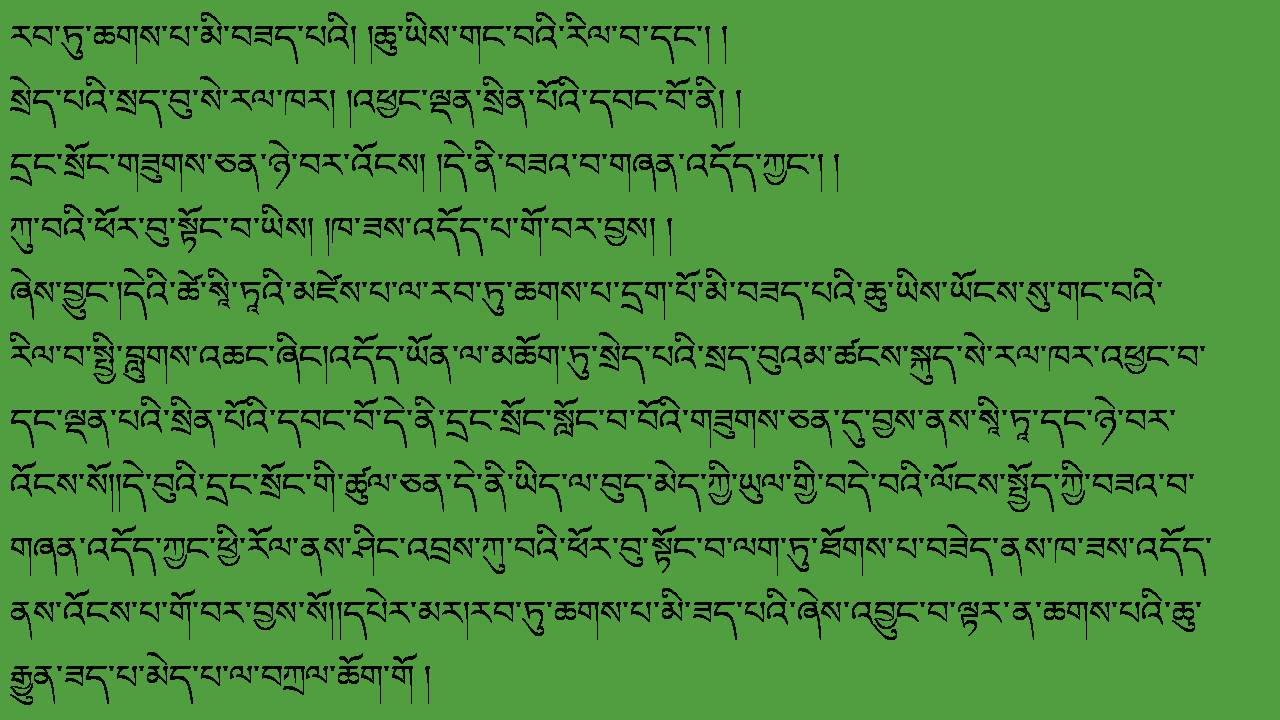 རབ་ཏུ་ཆགས་པ་མི་བཟད་པའི། །ཆུ་ཡིས་གང་བའི་རིལ་བ་དང་། །
སྲེད་པའི་སྲད་བུ་སེ་རལ་ཁར། །འཕྱང་ལྡན་སྲིན་པོའི་དབང་བོ་ནི། །
དྲང་སྲོང་གཟུགས་ཅན་ཉེ་བར་འོངས། །དེ་ནི་བཟའ་བ་གཞན་འདོད་ཀྱང་། །
ཀུ་བའི་ཕོར་བུ་སྟོང་བ་ཡིས། །ཁ་ཟས་འདོད་པ་གོ་བར་བྱས། །
ཞེས་བྱུང་།དེའི་ཚེ་སཱི་ཏཱའི་མཛེས་པ་ལ་རབ་ཏུ་ཆགས་པ་དྲག་པོ་མི་བཟད་པའི་ཆུ་ཡིས་ཡོངས་སུ་གང་བའི་
རིལ་བ་སྤྱི་བླུགས་འཆང་ཞིང།འདོད་ཡོན་ལ་མཆོག་ཏུ་སྲེད་པའི་སྲད་བུའམ་ཚངས་སྐུད་སེ་རལ་ཁར་འཕྱང་བ་
དང་ལྡན་པའི་སྲིན་པོའི་དབང་བོ་དེ་ནི་དྲང་སྲོང་སློང་བ་བོའི་གཟུགས་ཅན་དུ་བྱས་ནས་སཱི་ཏཱ་དང་ཉེ་བར་
འོངས་སོ།།དེ་བུའི་དྲང་སྲོང་གི་ཚུལ་ཅན་དེ་ནི་ཡིད་ལ་བུད་མེད་ཀྱི་ཡུལ་གྱི་བདེ་བའི་ལོངས་སྤྱོད་ཀྱི་བཟའ་བ་
གཞན་འདོད་ཀྱང་ཕྱི་རོལ་ནས་ཤིང་འབྲས་ཀུ་བའི་ཕོར་བུ་སྟོང་བ་ལག་ཏུ་ཐོགས་པ་བཟེད་ནས་ཁ་ཟས་འདོད་
ནས་འོངས་པ་གོ་བར་བྱས་སོ།།དཔེར་མར།རབ་ཏུ་ཆགས་པ་མི་ཟད་པའི་ཞེས་འབྱུང་བ་ལྟར་ན་ཆགས་པའི་ཆུ་
རྒྱུན་ཟད་པ་མེད་པ་ལ་བཀྲལ་ཆོག་གོ །